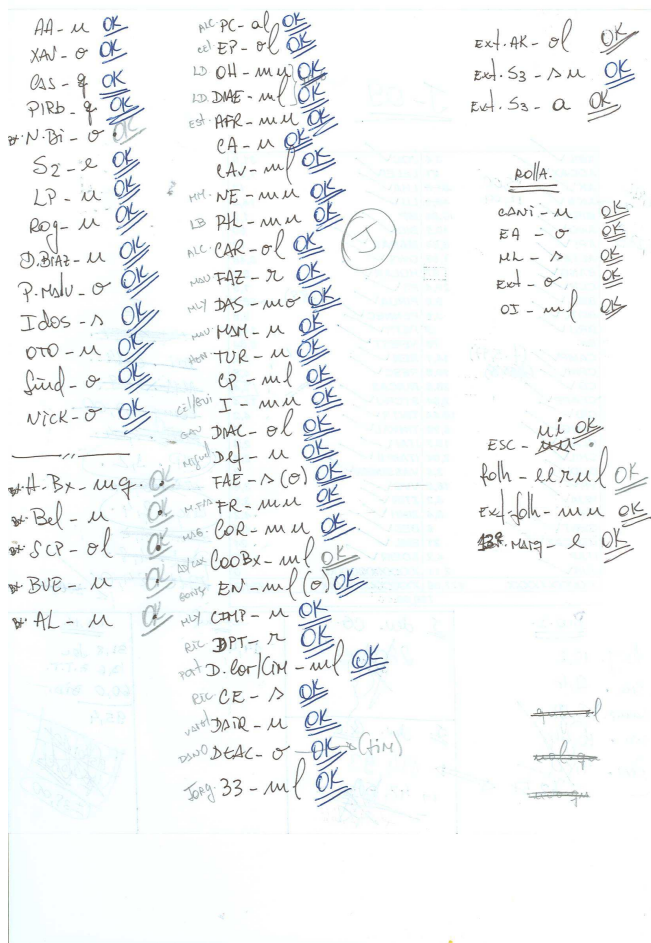 AA - u OK
XAV - o OK
CAS - q OK
PIRb - q OK
N.Bi - o OK
S2 - e OK
LP - u OK
Rog - u OK
D.BiAZ - u OK
P.MAlv - o OK
Idos - s OK
OTO - u OK
Sind - o OK
NiCK - o OK
H.Bx - mg. OK
Bel - u OK
SCP - ol OK
BUE - u OK
AL - u OK
ALC. PC - al OK
cel EP - ol OK
LD OH - mu OK
LD. DIAE - ml OK
Est. AFR - mu OK
CA - u OK
CAV - ml OK
MM. NE - mu OK
LB PHL - mu OK
ALC. CAR - ol OK
FAZ - r OK
MLY DAS - mo OK
MAM - u OK
TUR - u OK
CP - ml OK
I - mu OK
GAV DIAC - ol OK
Miguel Def - u OK
FAE - s (o) OK
FR - mu OK
MAG. COR - mu OK
COOBx - ml OK
EN - ml (o) OK
MLY CIMP - u OK
RiC DPT - r OK
Port D. Cor/CiM - ml OK
RiC CE - s OK
DAiR - u OK
DEAC - o - OK (fim)
Jorg. 33 - ml OK
J
Ext. AK - ol OK
Ext. S3 - su OK
Ext. S3 - a OK
ROllA.
CANi - u OK
EA - o OK
ML - s OK
Ext - o OK
OI - ml OK
ESC - ui OK
folh - eerul OK
Ext folh - mu OK
MAiq - e OK